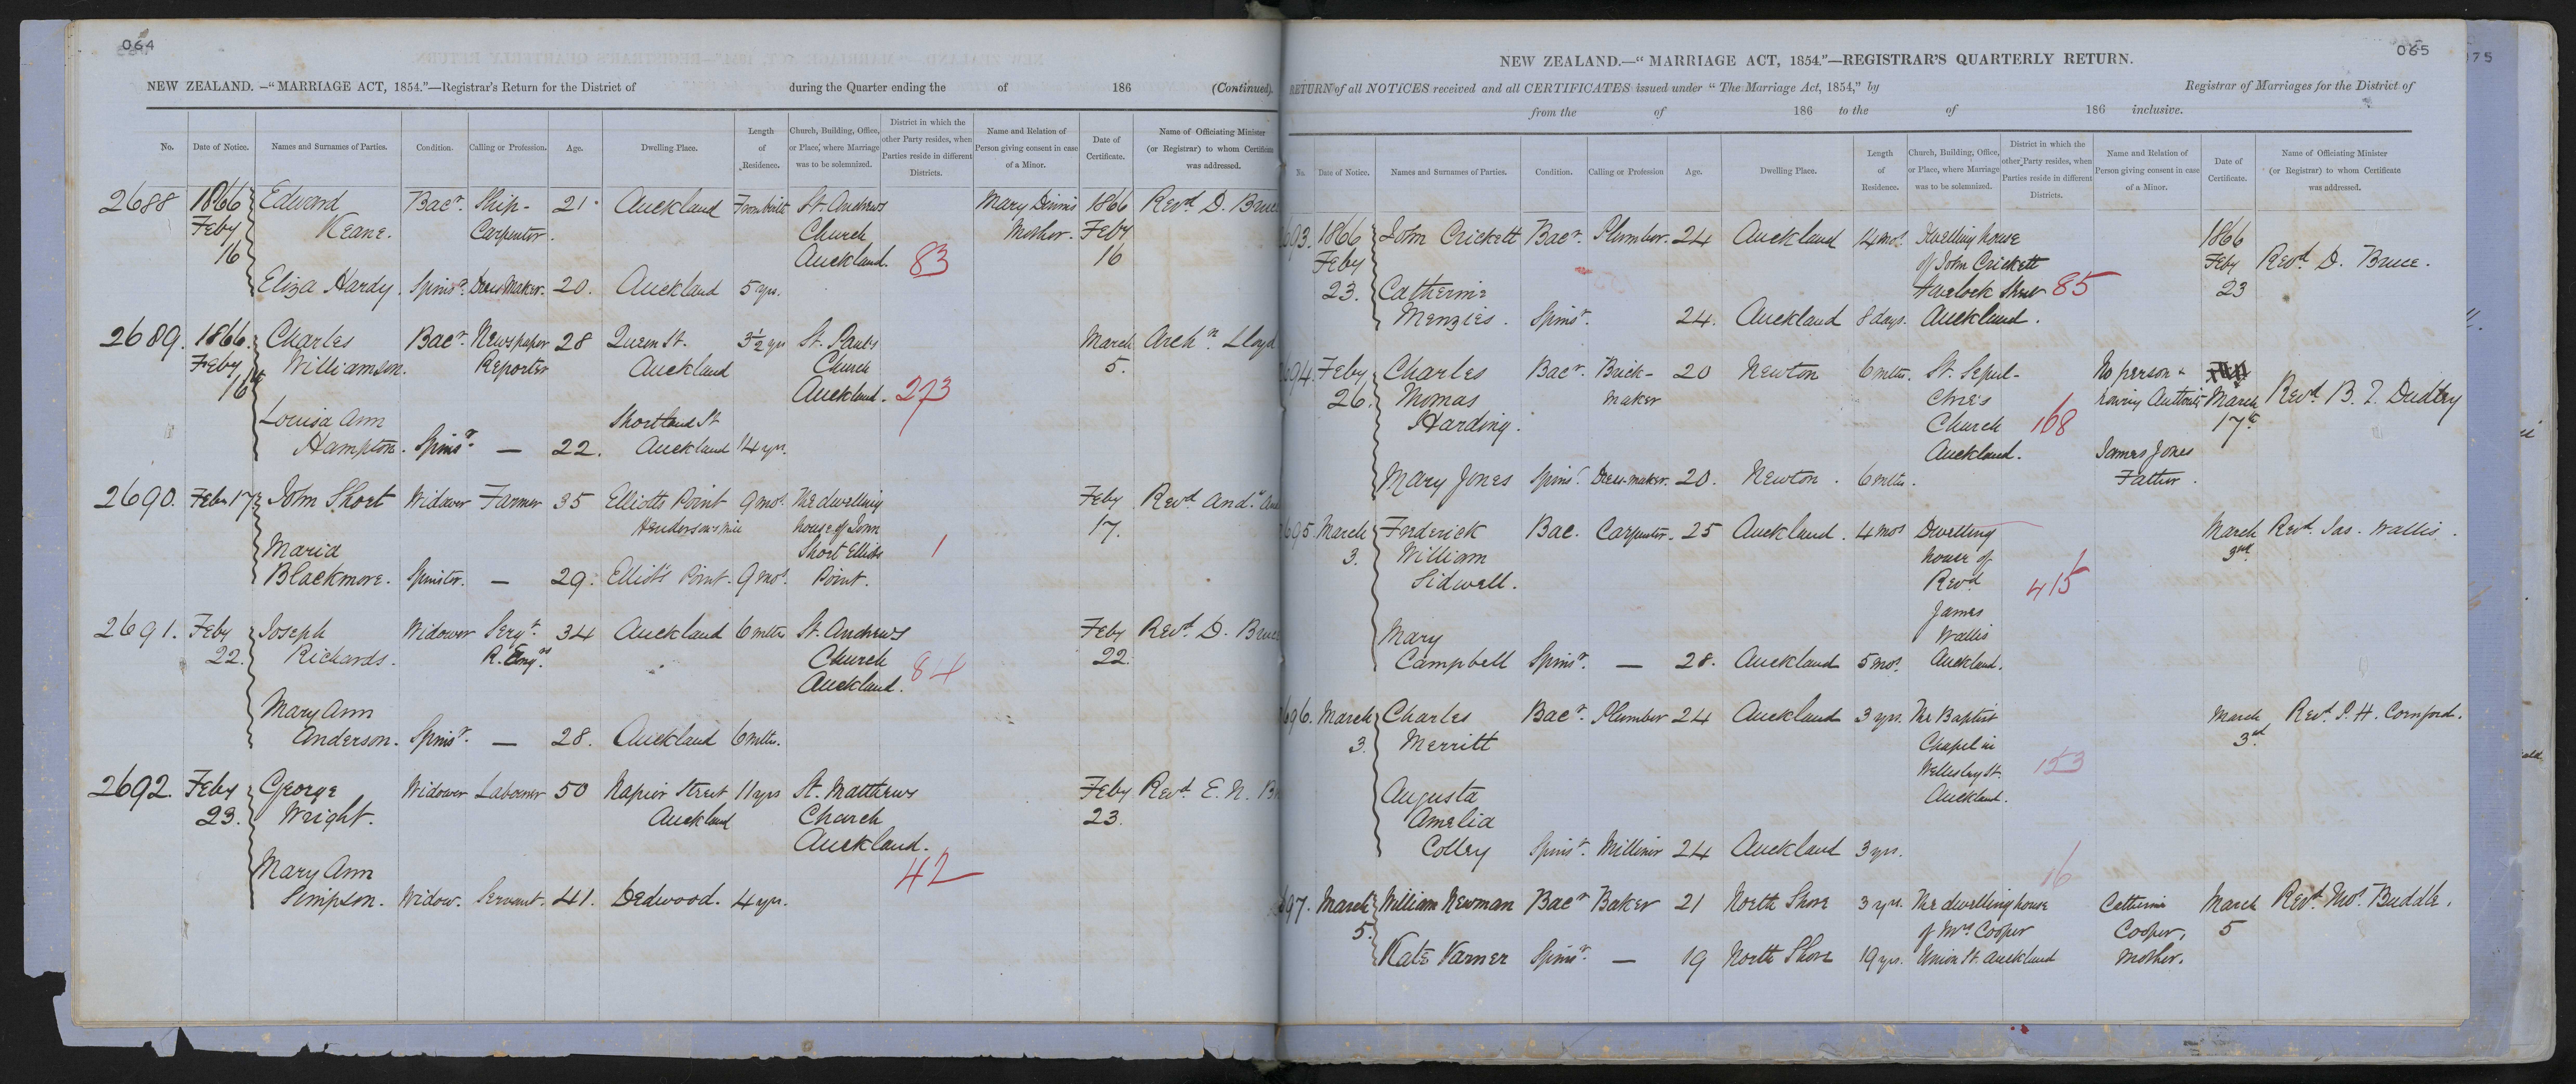 064
NEW ZEALAND. —"MARRIAGE ACT, 1854."—Registrar's Return for the District of during the Quarter ending the of 186 (Continued).
No. Date of Notice. Names and Surnames of Parties. Condition. Calling or Profession. Age. Dwelling Place. Length of Residence. Church, Building, Office, or Place, where Marriage was to be solemnized. District in which the other Party resides, when Parties reside in different Districts. Name and Relation of Person giving consent in case of a Minor. Date of Certificate. Name of Officiating Minister (or Registrar) to whom Certificate was addressed.
2688 1866 Edward Bacr. Ship- 21 Auckland From birth St. Andrews Mary Dennis 1866 Revd D. Bruce
Feby Keane. Carpenter. Church Mother. Feby
16 Auckland. 83 16
Eliza Hardy. Spinsr. Dress Maker. 20. Auckland 5 yrs.
2689. 1866. Charles Bacr. Newspaper 28 Queen St. 3½ yrs St. Pauls March Archn. Lloyd
Feby Williamson. Reporter Auckland Church 5.
16 Auckland. 273
Louisa Ann Shortland St
Hampton. Spinsr. — 22. Auckland 14 yrs.
2690. Feby 17 John Short Widower Farmer 35 Elliotts Point 9 mos. The dwelling Feby Revd And.
Hendersons Mill house of John 17.
Maria Short Elliots 1
Blackmore. Spinster. — 29. Elliot's Point. 9 mos. Point.
2691. Feby Joseph Widower Sergt. 34 Auckland 6 mths St. Andrews Feby Revd. D. Bruce
22. Richards. R. Engrs. Church 84 22.
Auckland.
Mary Ann
Anderson. Spinsr. — 28. Auckland 6 mths.
2692. Feby George Widower Laborer 50 Napier Street 11 yrs St. Matthews Feby Revd. E. N.
23. Wright. Auckland Church 23.
Auckland.
Mary Ann 42
Simpson. Widow. Servant. 41. Dedwood. 4 yrs.
065
NEW ZEALAND.—"MARRIAGE ACT, 1854."—REGISTRAR'S QUARTERLY RETURN.
RETURN of all NOTICES received and all CERTIFICATES issued under "The Marriage Act, 1854," by Registrar of Marriages for the District of
from the of 186 to the of 186 inclusive.
No. Date of Notice. Names and Surnames of Parties. Condition. Calling or Profession Age. Dwelling Place. Length of Residence. Church, Building, Office, or Place, where Marriage was to be solemnized. District in which the other Party resides, when Parties reside in different Districts. Name and Relation of Person giving consent in case of a Minor. Date of Certificate. Name of Officiating Minister (or Registrar) to whom Certificate was addressed.
693. 1866 John Crickett Bacr. Plumber. 24 Auckland 14 mos. Dwelling house 1866
Feby of John Crickett Feby Revd. D. Bruce.
23. Catherine Havelock Street 85 23
Menzies. Spinsr. 24. Auckland 8 days. Auckland.
694. Feby Charles Bacr. Brick- 20 Newton 6 mths. St. Sepul- No person
26. Thomas maker chre's having Authority March Revd. B. T. Dudley
Harding. Church 168 17th
Auckland. James Jones
Mary Jones Spinsr. Dress-maker. 20. Newton. 6 mths. Father.
695. March Frederick Bac. Carpenter. 25 Auckland. 4 mos Dwelling March Revd. Jas. Wallis.
3. William house of 3rd
Sidwell. Revd 415
James
Mary Wallis
Campbell Spinsr. — 28. Auckland 5 mos. Auckland.
696. March Charles Bacr. Plumber 24 Auckland 3 yrs. The Baptist March Revd. P. H. Cornford.
3. Merritt Chapel in 3rd
Wellesley St. 153
Augusta Auckland.
Amelia
Colley Spinsr. Milliner 24 Auckland 3 yrs.
16
697. March William Newman Bacr Baker 21 North Shore 3 yrs. The dwelling house Catherine March Revd. Thos. Buddle.
5. of Mrs Cooper Cooper, 5
Kate Varner Spinsr. — 19 North Shore 19 yrs. Union St. Auckland Mother.
075